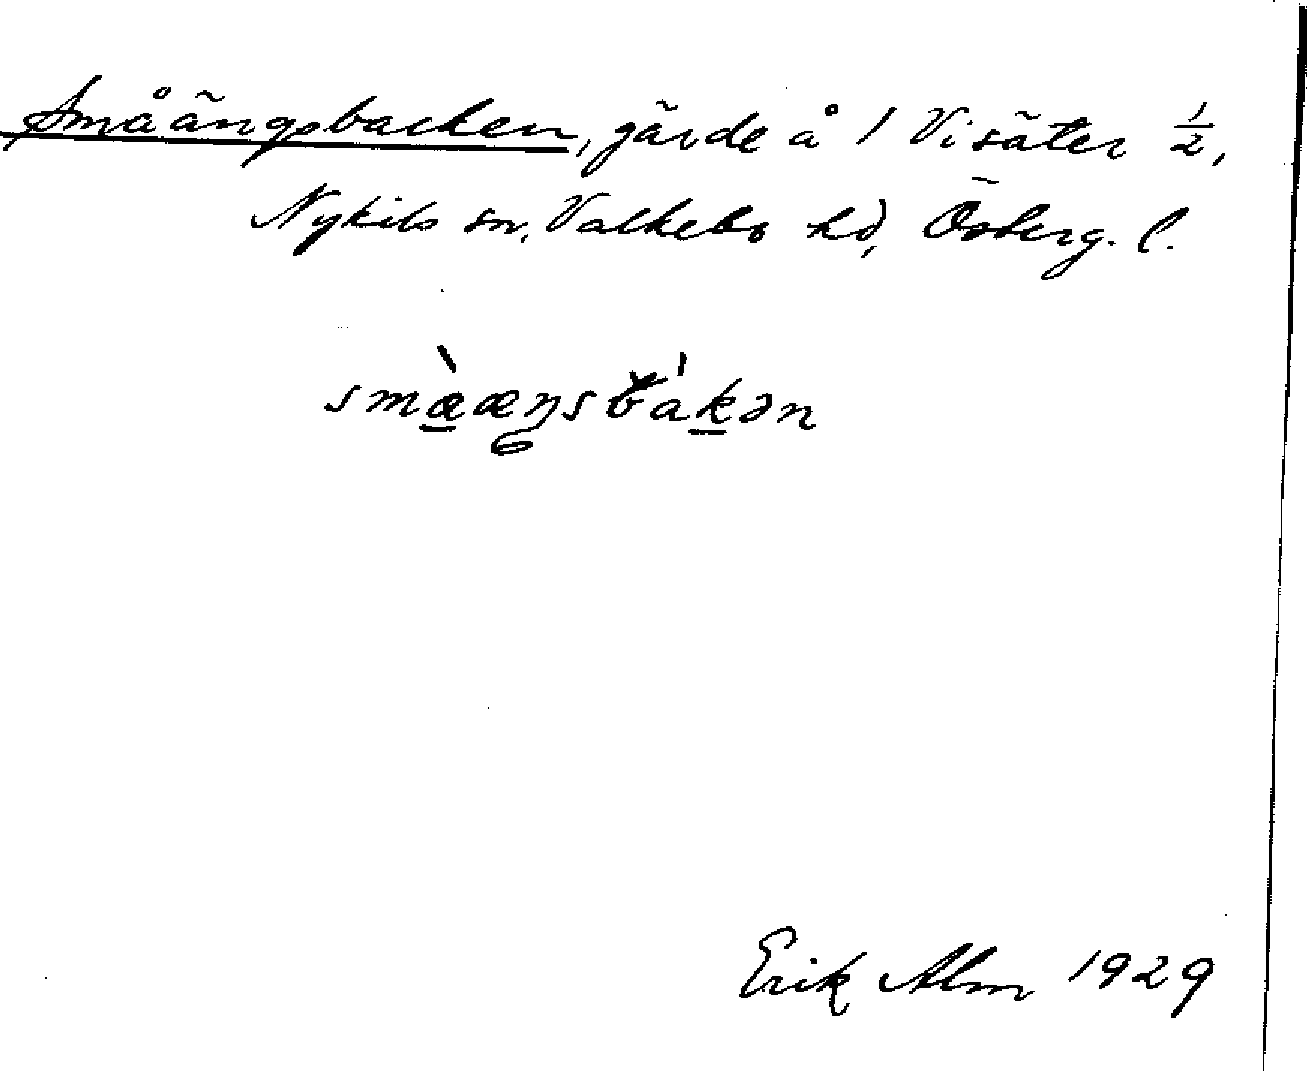 Småängsbacken, gärde å 1 Visäter ½,
Nykils sn, Valkebo hd, Österg. l.
smæ̀æŋsbákən
Erik Alm 1929